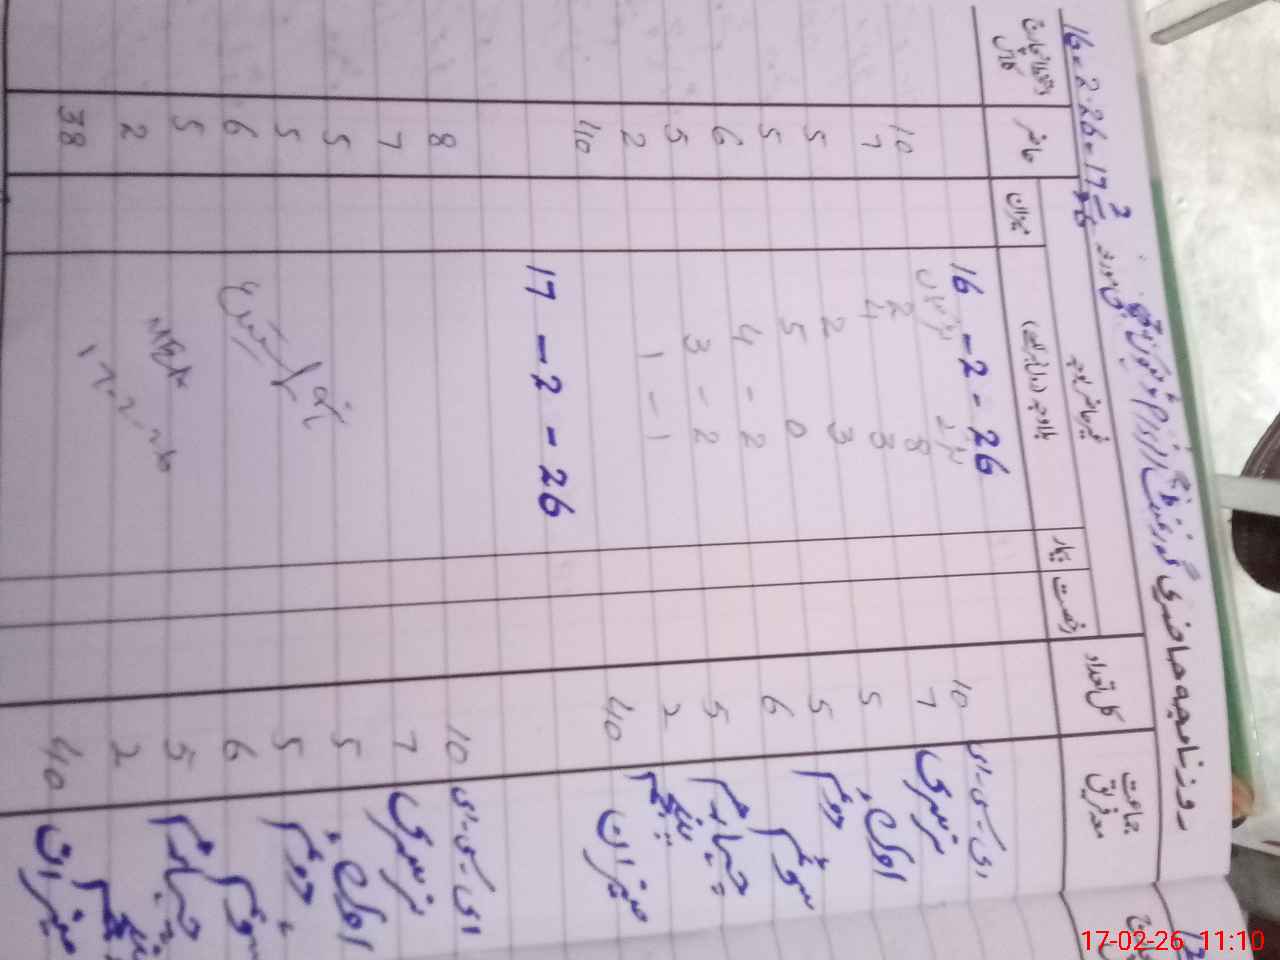 روزنامچہ حاضری گورنمنٹ
مورخہ
16-2-26
غیر حاضر بوجہ
جماعت معہ فریق کل تعداد رخصت بیمار میزان حاضر دستخط انچارج کلاس
16 - 2 - 26
ای-سی-ای 10 8 2 10
نرسری 7 3 4 7
اول 5 3 2 5
دوئم 5 0 5 5
سوئم 6 2 - 4 6
چہارم 5 2 - 3 5
پنجم 2 1 - 1 2
میزان 40 40
17 - 2 - 26
ای-سی-ای 10 8
نرسری 7 7
اول 5 5
دوئم 5 5
سوئم 6 6
چہارم 5 5
پنجم 2 2
میزان 40 38
17-02-26 11:10